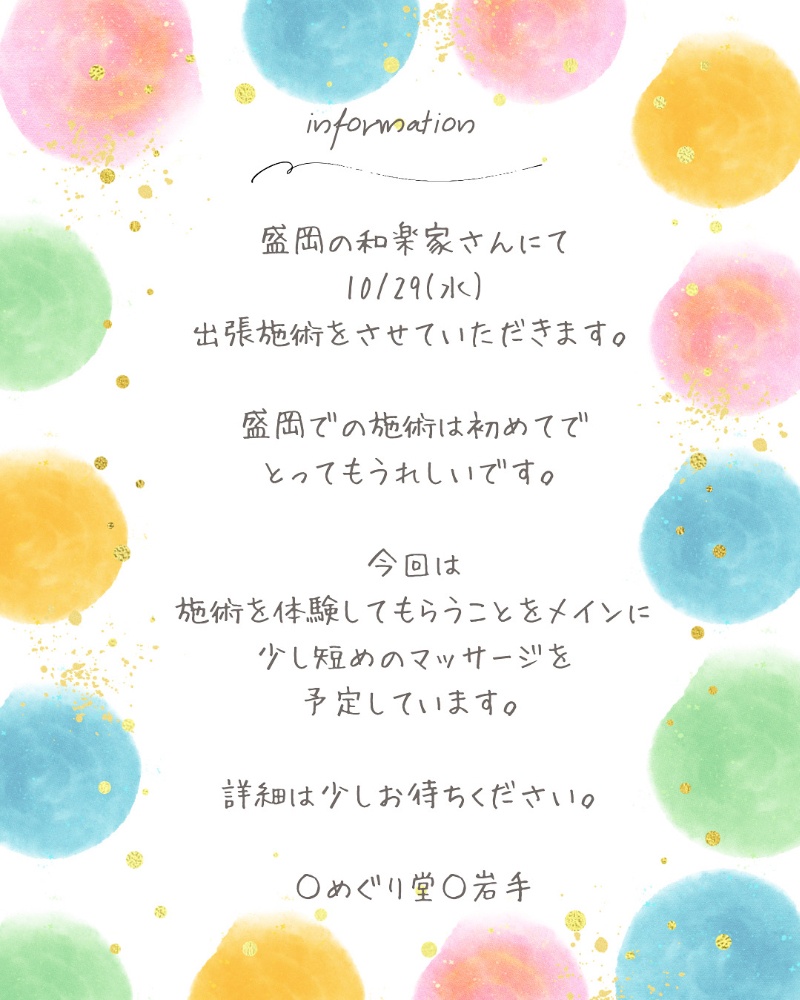 information
盛岡の和楽家さんにて
10/29(水)
出張施術をさせていただきます。
盛岡での施術は初めてで
とってもうれしいです。
今回は
施術を体験してもらうことをメインに
少し短めのマッサージを
予定しています。
詳細は少しお待ちください。
〇めぐり堂〇岩手